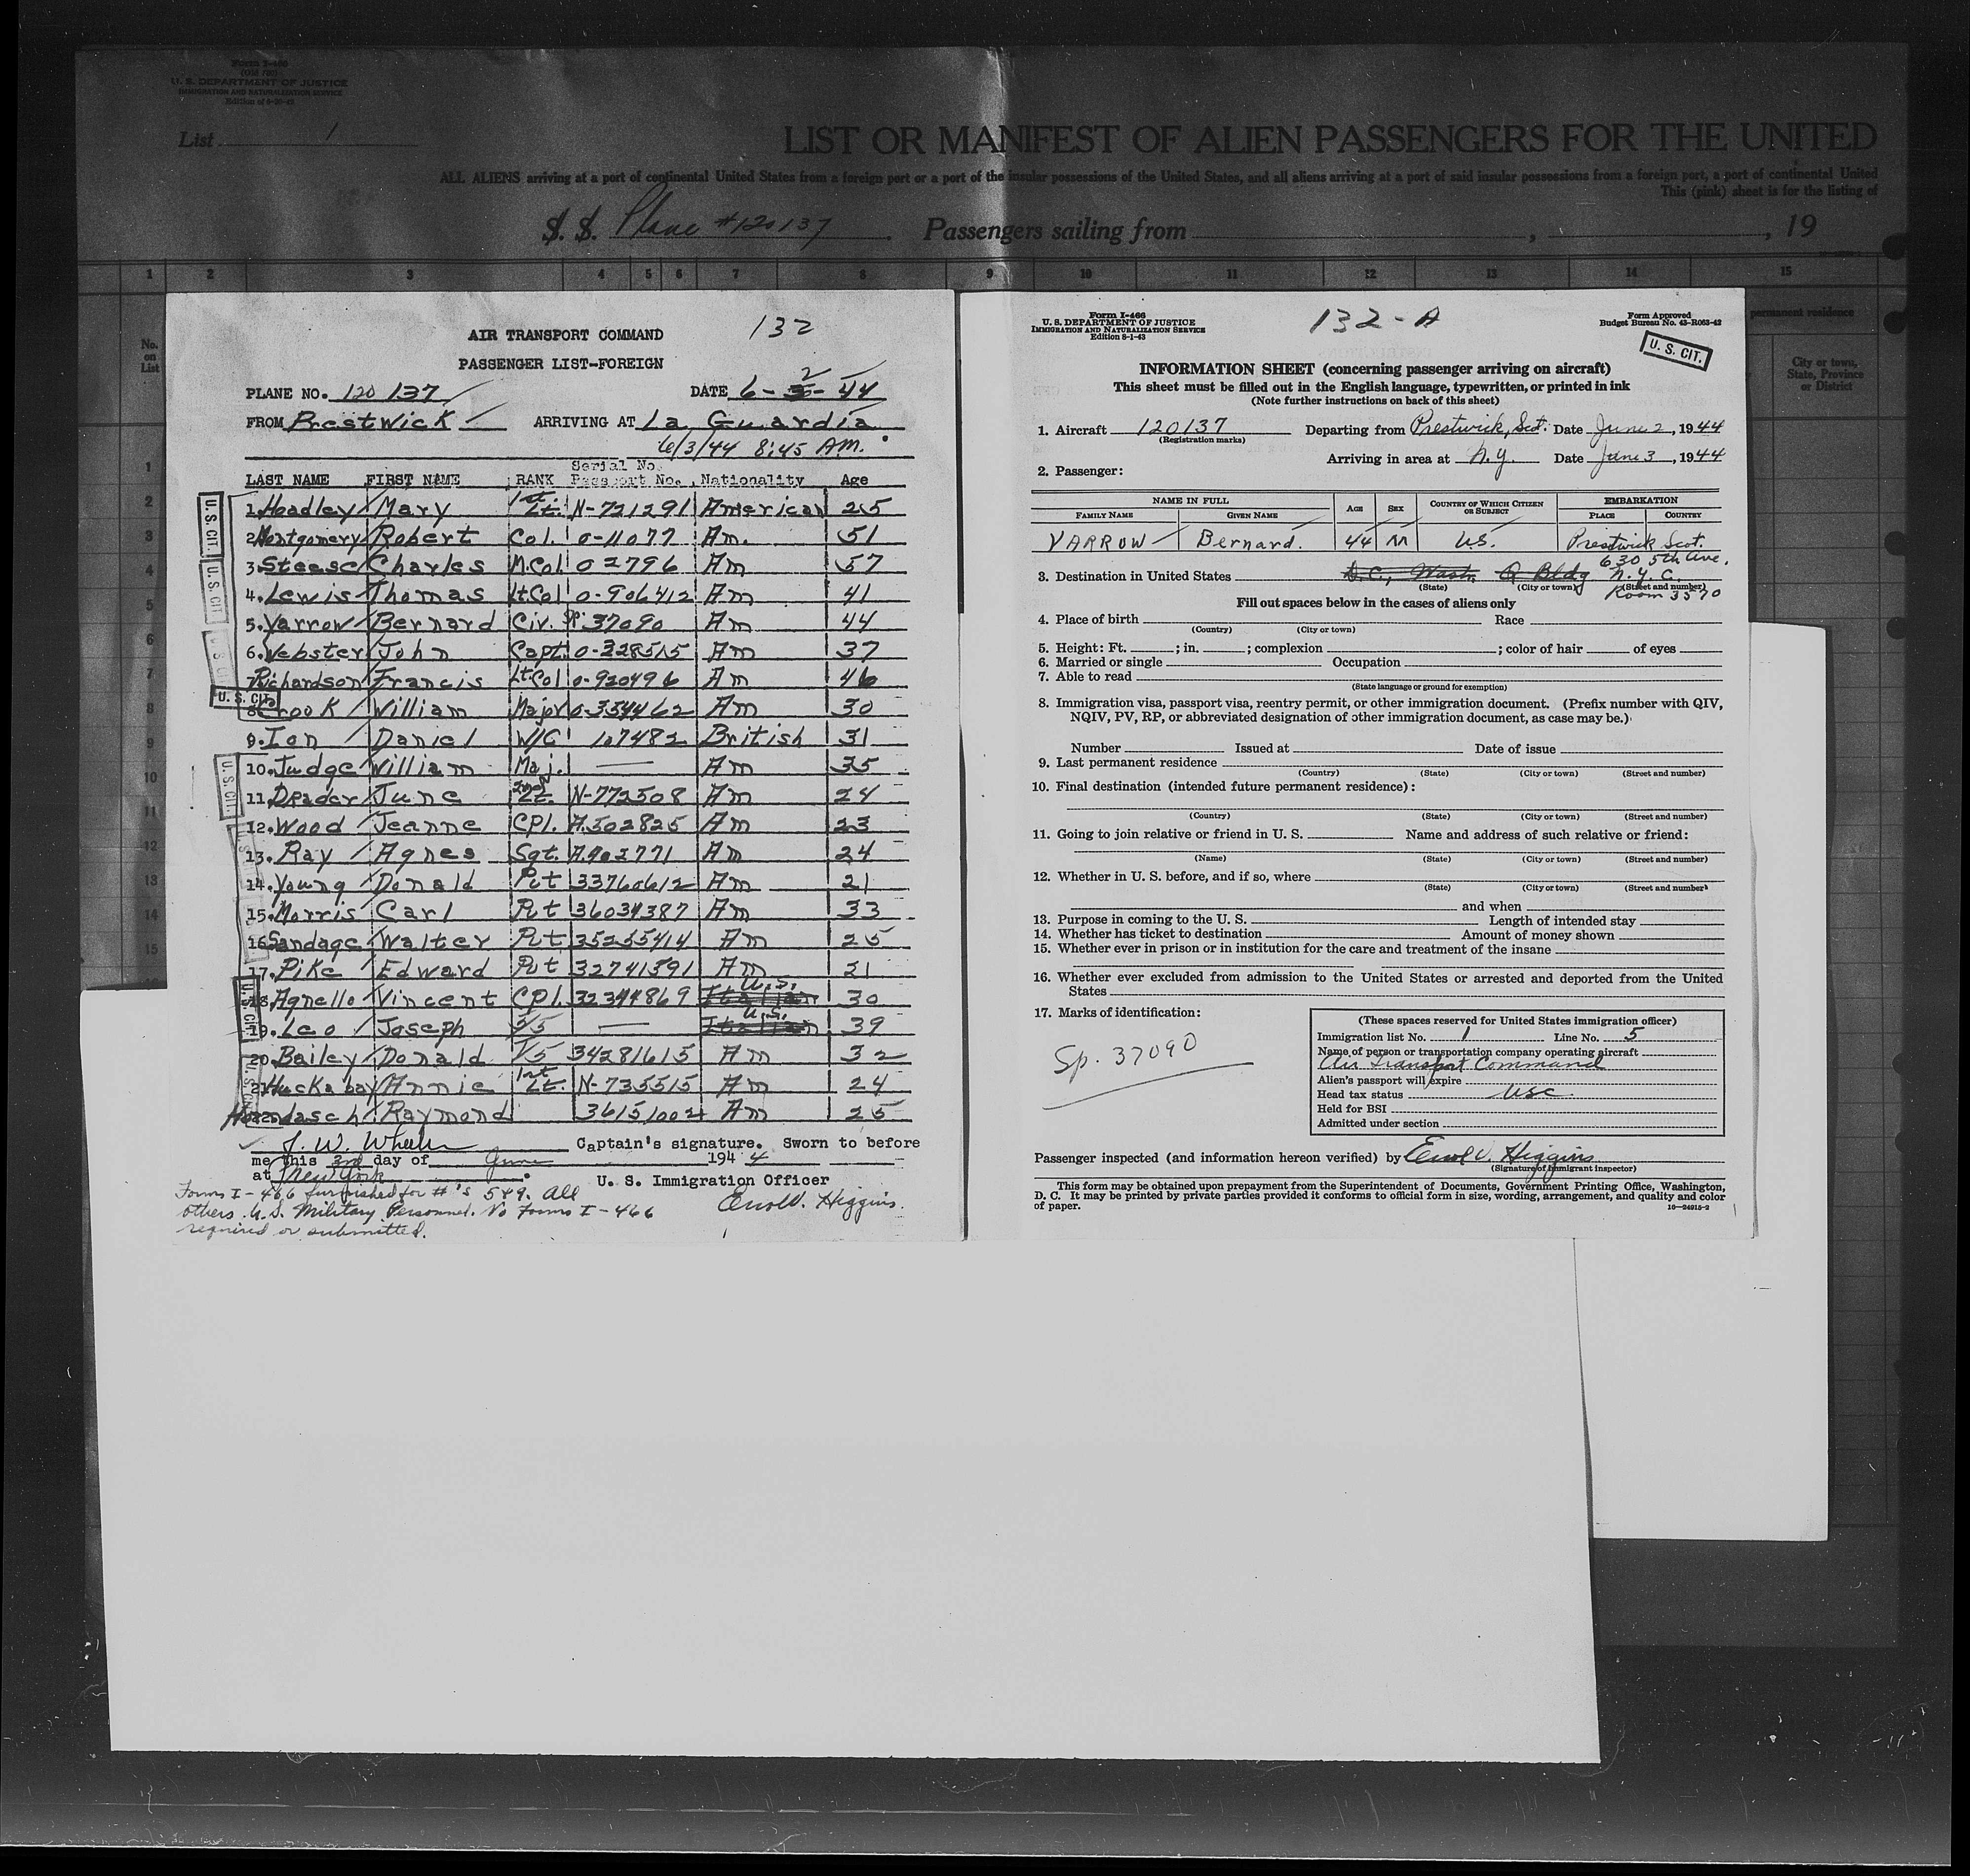 Form I-466
(Old 780)
U. S. DEPARTMENT OF JUSTICE
IMMIGRATION AND NATURALIZATION SERVICE
List 1
LIST OR MANIFEST OF ALIEN PASSENGERS FOR THE UNITED
ALL ALIENS arriving at a port of continental United States from a foreign port or a port of the insular possessions of the United States, and all aliens arriving at a port of said insular possessions from a foreign port, a port of continental United
This (pink) sheet is for the listing of
S. S. Plane #120137 Passengers sailing from , , 19
1 2 3 4 5 6 7 8 9 10 11 12 13 14 15
No. on List
permanent residence
City or town, State, Province or District
1
2
3
4
5
6
7
8
9
10
11
12
13
14
15
AIR TRANSPORT COMMAND 132
PASSENGER LIST--FOREIGN
PLANE NO. 120 137 DATE 6-2-44
FROM Prestwick ARRIVING AT La Guardia
6/3/44 8:45 AM.
LAST NAME FIRST NAME RANK Serial No. Passport No. Nationality Age
1. Headley Mary 1st Lt. N-721291 American 25
2. Montgomery Robert Col. 0-11077 Am. 51
3. Steese Charles M.Col 02796 Am 57
4. Lewis Thomas Lt Col 0-906412 Am 41
5. Yarrow Bernard Civ. SP. 37090 Am 44
6. Webster John Capt. 0-328515 Am 37
7. Richardson Francis Lt Col 0-920496 Am 46
8. Crook William Major 0-354462 Am 30
9. Ion Daniel W/C 107482 British 31
10. Judge William Maj. — Am 35
11. Drader June 2nd Lt. N-772508 Am 24
12. Wood Jeanne Cpl. A.302825 Am 23
13. Ray Agnes Sgt. A.902771 Am 24
14. Young Donald Pvt 33760612 Am 21
15. Morris Carl Pvt 36034387 Am 33
16. Sandage Walter Pvt 35255414 Am 25
17. Pike Edward Pvt 32741391 Am 21
18. Agnello Vincent Cpl. 32394869 Italian U.S. 30
19. Leo Joseph T/5 — Italian U.S. 39
20. Bailey Donald T/5 34281615 Am 32
21. Huckabay Annie 1st Lt. N-735515 Am 24
22. Raymond 36151002 Am 25
U. S. CIT.
U. S. CIT.
U. S. CIT.
U. S. CIT.
U. S. CIT.
U. S. CIT.
J. W. Wheeler Captain's signature. Sworn to before
me this 3rd day of June 1944
at New York.
U. S. Immigration Officer
Forms I-466 furnished for #'s 5&9. All
others U.S. Military Personnel. No Forms I-466
required or submitted.
Enol V. Higgins.
Form I-466
U. S. DEPARTMENT OF JUSTICE
IMMIGRATION AND NATURALIZATION SERVICE
Edition 8-1-43
132-A
Form Approved
Budget Bureau No. 43-R063-42
U. S. CIT.
INFORMATION SHEET (concerning passenger arriving on aircraft)
This sheet must be filled out in the English language, typewritten, or printed in ink
(Note further instructions on back of this sheet)
1. Aircraft 120137 Departing from Prestwick, Scot. Date June 2, 1944
(Registration marks)
Arriving in area at N.Y. Date June 3, 1944
2. Passenger:
NAME IN FULL AGE SEX COUNTRY OF WHICH CITIZEN OR SUBJECT EMBARKATION
FAMILY NAME GIVEN NAME PLACE COUNTRY
YARROW Bernard. 44 M U.S. Prestwick Scot.
630 5th Ave.
3. Destination in United States D.C., Wash. Q Bldg N.Y.C.
(State) (City or town) (Street and number)
Room 3570
Fill out spaces below in the cases of aliens only
4. Place of birth Race
(Country) (City or town)
5. Height: Ft. ; in. ; complexion ; color of hair of eyes
6. Married or single Occupation
7. Able to read
(State language or ground for exemption)
8. Immigration visa, passport visa, reentry permit, or other immigration document. (Prefix number with QIV,
NQIV, PV, RP, or abbreviated designation of other immigration document, as case may be.)
Number Issued at Date of issue
9. Last permanent residence
(Country) (State) (City or town) (Street and number)
10. Final destination (intended future permanent residence):
(Country) (State) (City or town) (Street and number)
11. Going to join relative or friend in U. S. Name and address of such relative or friend:
(Name) (State) (City or town) (Street and number)
12. Whether in U. S. before, and if so, where
(State) (City or town) (Street and number)
and when
13. Purpose in coming to the U. S. Length of intended stay
14. Whether has ticket to destination Amount of money shown
15. Whether ever in prison or in institution for the care and treatment of the insane
16. Whether ever excluded from admission to the United States or arrested and deported from the United
States
17. Marks of identification:
Sp. 37090
(These spaces reserved for United States immigration officer)
Immigration list No. 1 Line No. 5
Name of person or transportation company operating aircraft
Air Transport Command
Alien's passport will expire
Head tax status USC
Held for BSI
Admitted under section
Passenger inspected (and information hereon verified) by Enol V. Higgins
(Signature of immigrant inspector)
This form may be obtained upon prepayment from the Superintendent of Documents, Government Printing Office, Washington,
D. C. It may be printed by private parties provided it conforms to official form in size, wording, arrangement, and quality and color
of paper. 16—24915-2